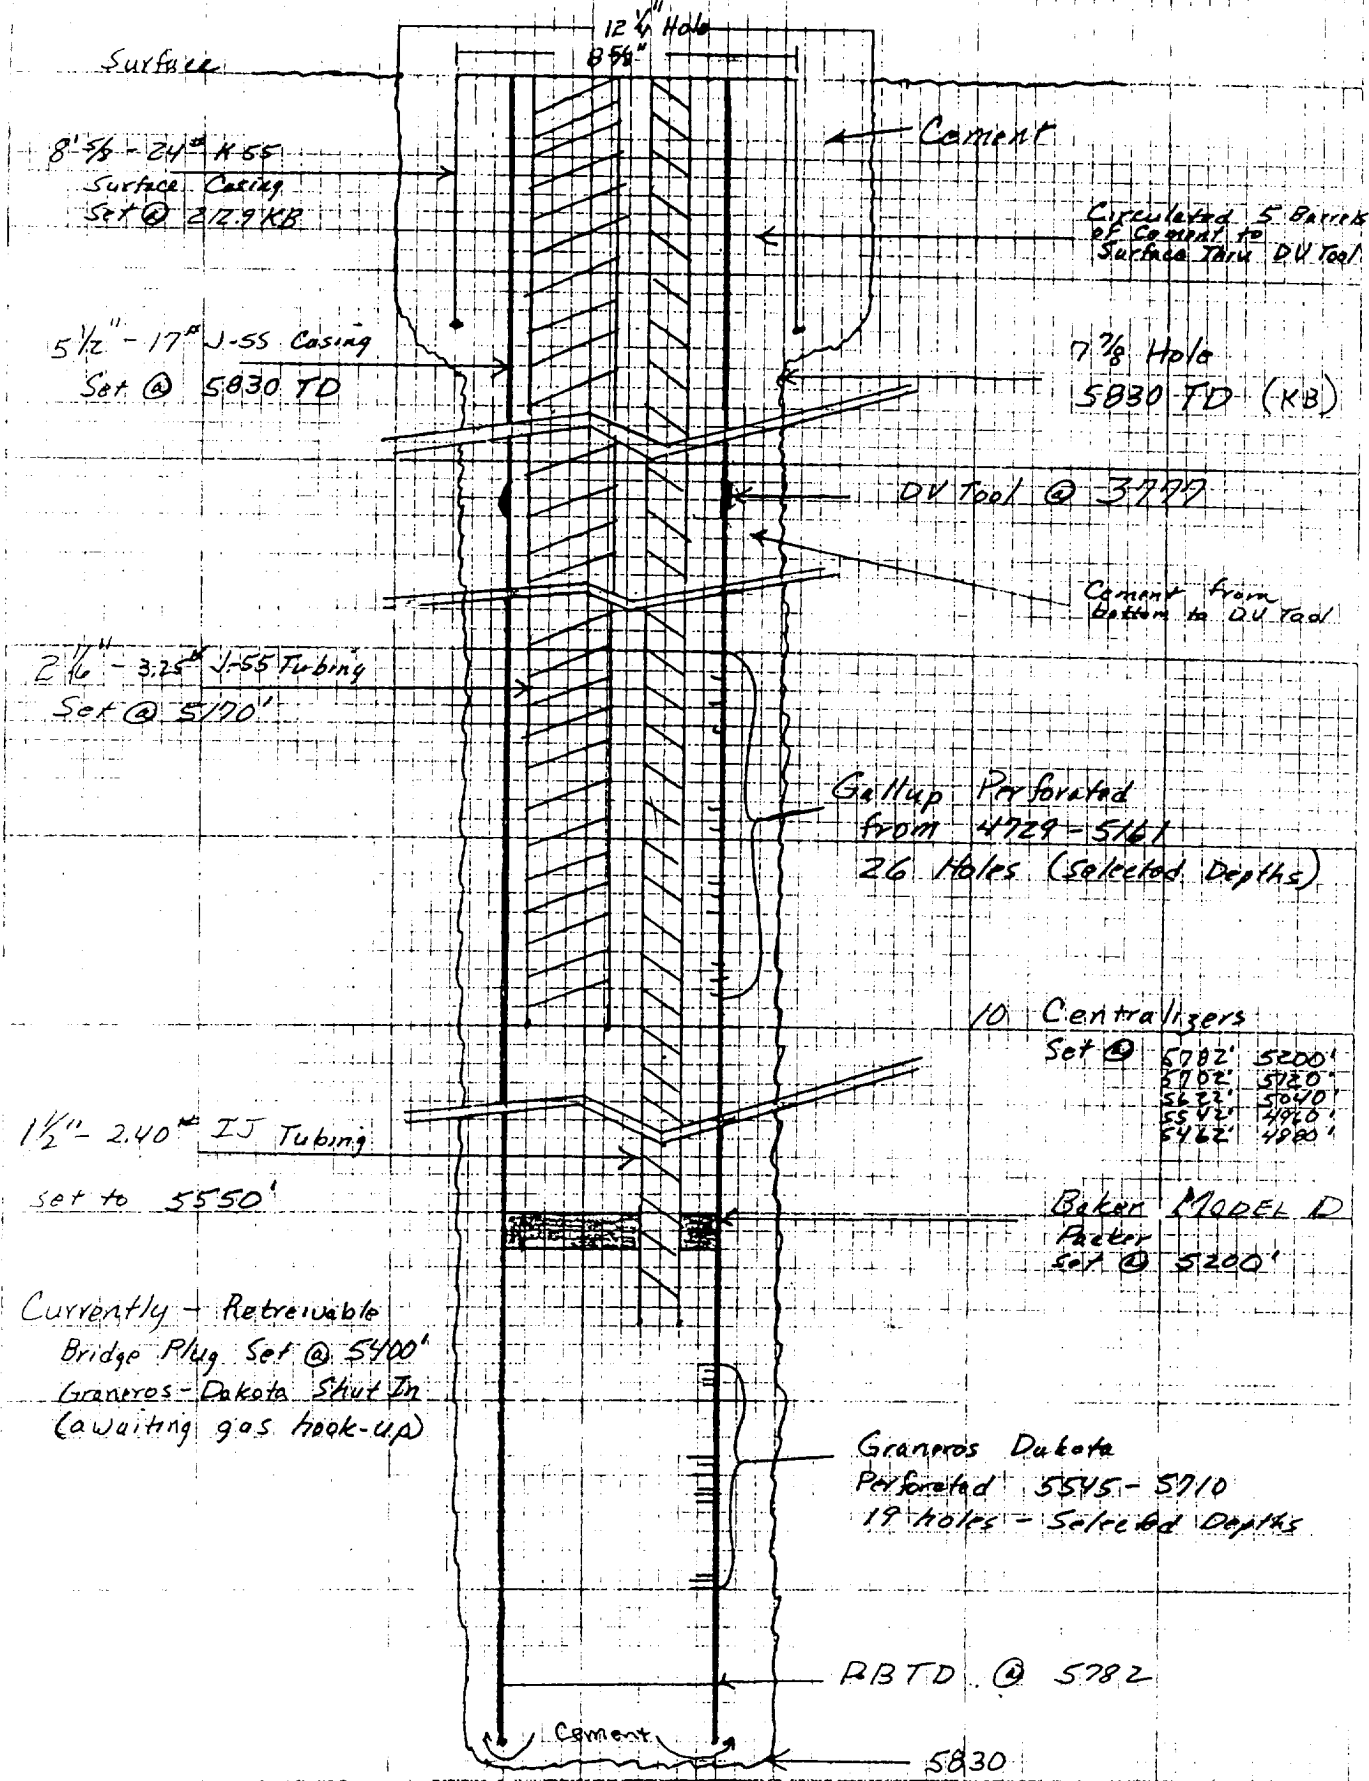 12 1/4" Hole
8 5/8"
Surface
8' 5/8 - 24# K55
Surface Casing
Set @ 212.9 KB
Cement
Circulated 5 Barrels
of Cement to
Surface Thru DV Tool
5 1/2" - 17# J-55 Casing
Set @ 5830 TD
7 7/8 Hole
5830 TD (KB)
DV Tool @ 3777
Cement from
bottom to DV Tool
2 1/16" - 3.25# J-55 Tubing
Set @ 5170'
Gallup Perforated
from 4729 - 5161
26 Holes (Selected Depths)
10 Centralizers
Set @ 5782' 5200'
5702' 5120'
5622' 5040'
5542' 4960'
5462' 4880'
1 1/2" - 2.40# IJ Tubing
set to 5550'
Baker MODEL D
Packer
set @ 5200'
Currently - Retreivable
Bridge Plug Set @ 5400'
Graneros - Dakota Shut In
(awaiting gas hook-up)
Graneros Dakota
Perforated 5545 - 5710
19 holes - Selected Depths
PBTD @ 5782
Cement
5830